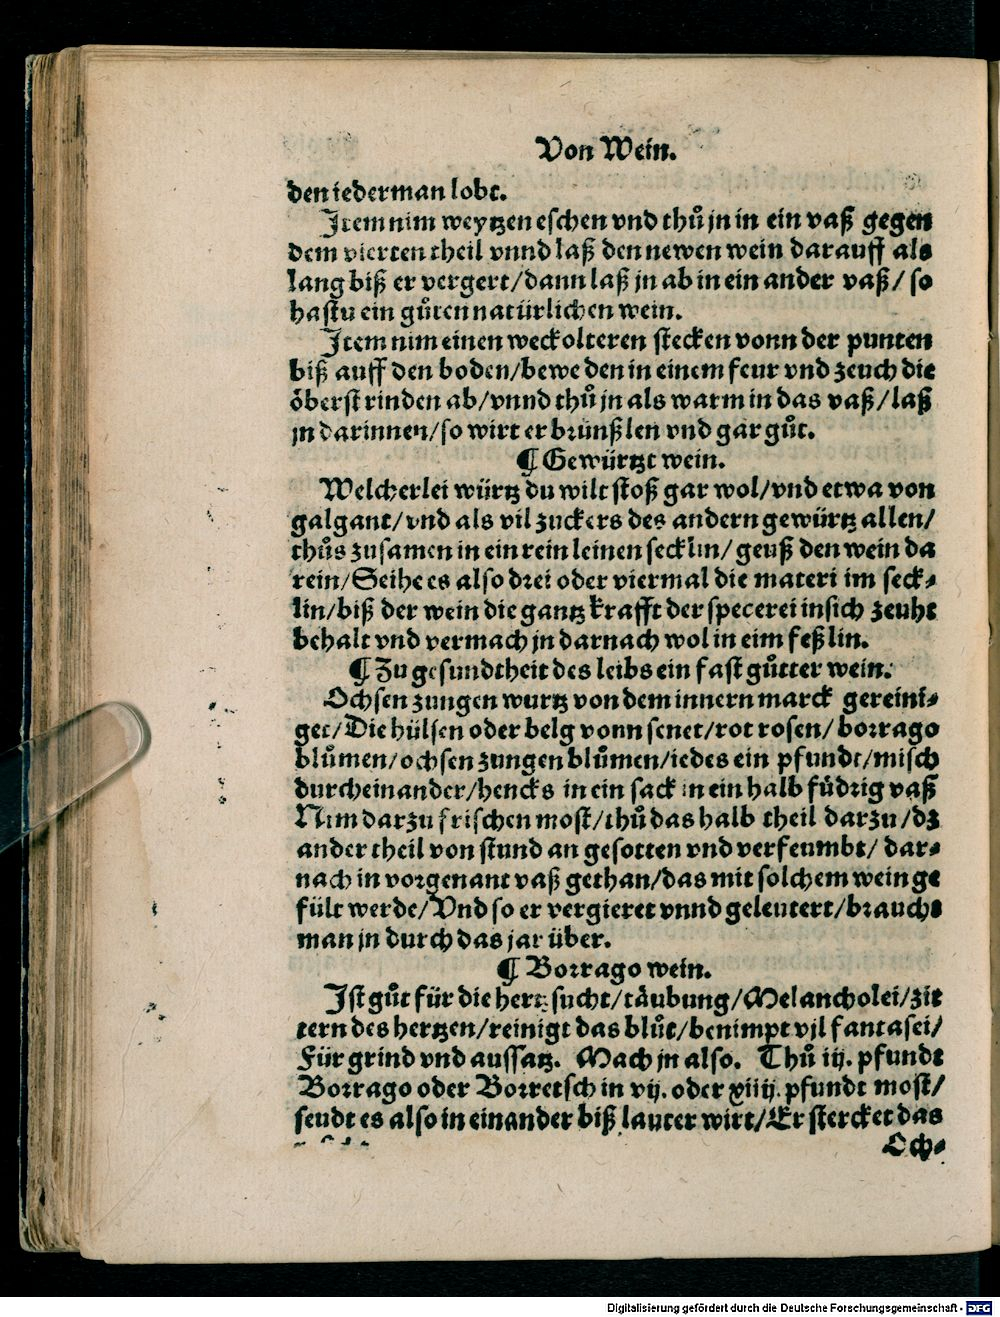 Von Wein.
den iederman lobt.
Item nim weytzen eschen vnd thů jn in ein vaß gegen
dem vierten theil vnnd laß den newen wein darauff als
lang biß er vergert/dann laß jn ab in ein ander vaß/ so
hastu ein gůten natürlichen wein.
Item nim einen weckolteren stecken vonn der punten
biß auff den boden/bewe den in einem feur vnd zeuch die
öberst rinden ab/vnnd thů jn als warm in das vaß/laß
jn darinnen/so wirt er brünßlen vnd gar gůt.
¶ Gewürtzt wein.
Welcherlei würtz du wilt stoß gar wol/vnd etwa von
galgant/vnd als vil zuckers des andern gewürtz allen/
thůs zusamen in ein rein leinen secklin/ geuß den wein da
rein/Seihe es also drei oder viermal die materi im seck⸗
lin/biß der wein die gantz krafft der specerei insich zeuht
behalt vnd vermach jn darnach wol in eim feßlin.
¶ Zu gesundtheit des leibs ein fast gůtter wein.
Ochsen zungen wurtz von dem innern marck gereini⸗
get/Die hülsen oder belg vonn senet/rot rosen/ borrago
blůmen/ochsen zungen blůmen/iedes ein pfundt/misch
durcheinander/hencks in ein sack in ein halb fůdrig vaß
Nim darzu frischen most/thů das halb theil darzu/dz
ander theil von stund an gesotten vnd verfeumbt/ dar⸗
nach in vorgenant vaß gethan/das mit solchem wein ge
fült werde/Vnd so er vergieret vnnd geleutert/brauchs
man jn durch das jar über.
¶ Borrago wein.
Ist gůt für die hertz sucht/täubung/Melancholei/zit
tern des hertzen/reinigt das blůt/benimpt vil fantasei/
Für grind vnd aussatz. Mach jn also. Thů iij. pfundt
Borrago oder Borretsch in vij. oder xiiij. pfundt most/
seudt es also in einander biß lauter wirt/Er stercket das
Och⸗
Digitalisierung gefördert durch die Deutsche Forschungsgemeinschaft - DFG